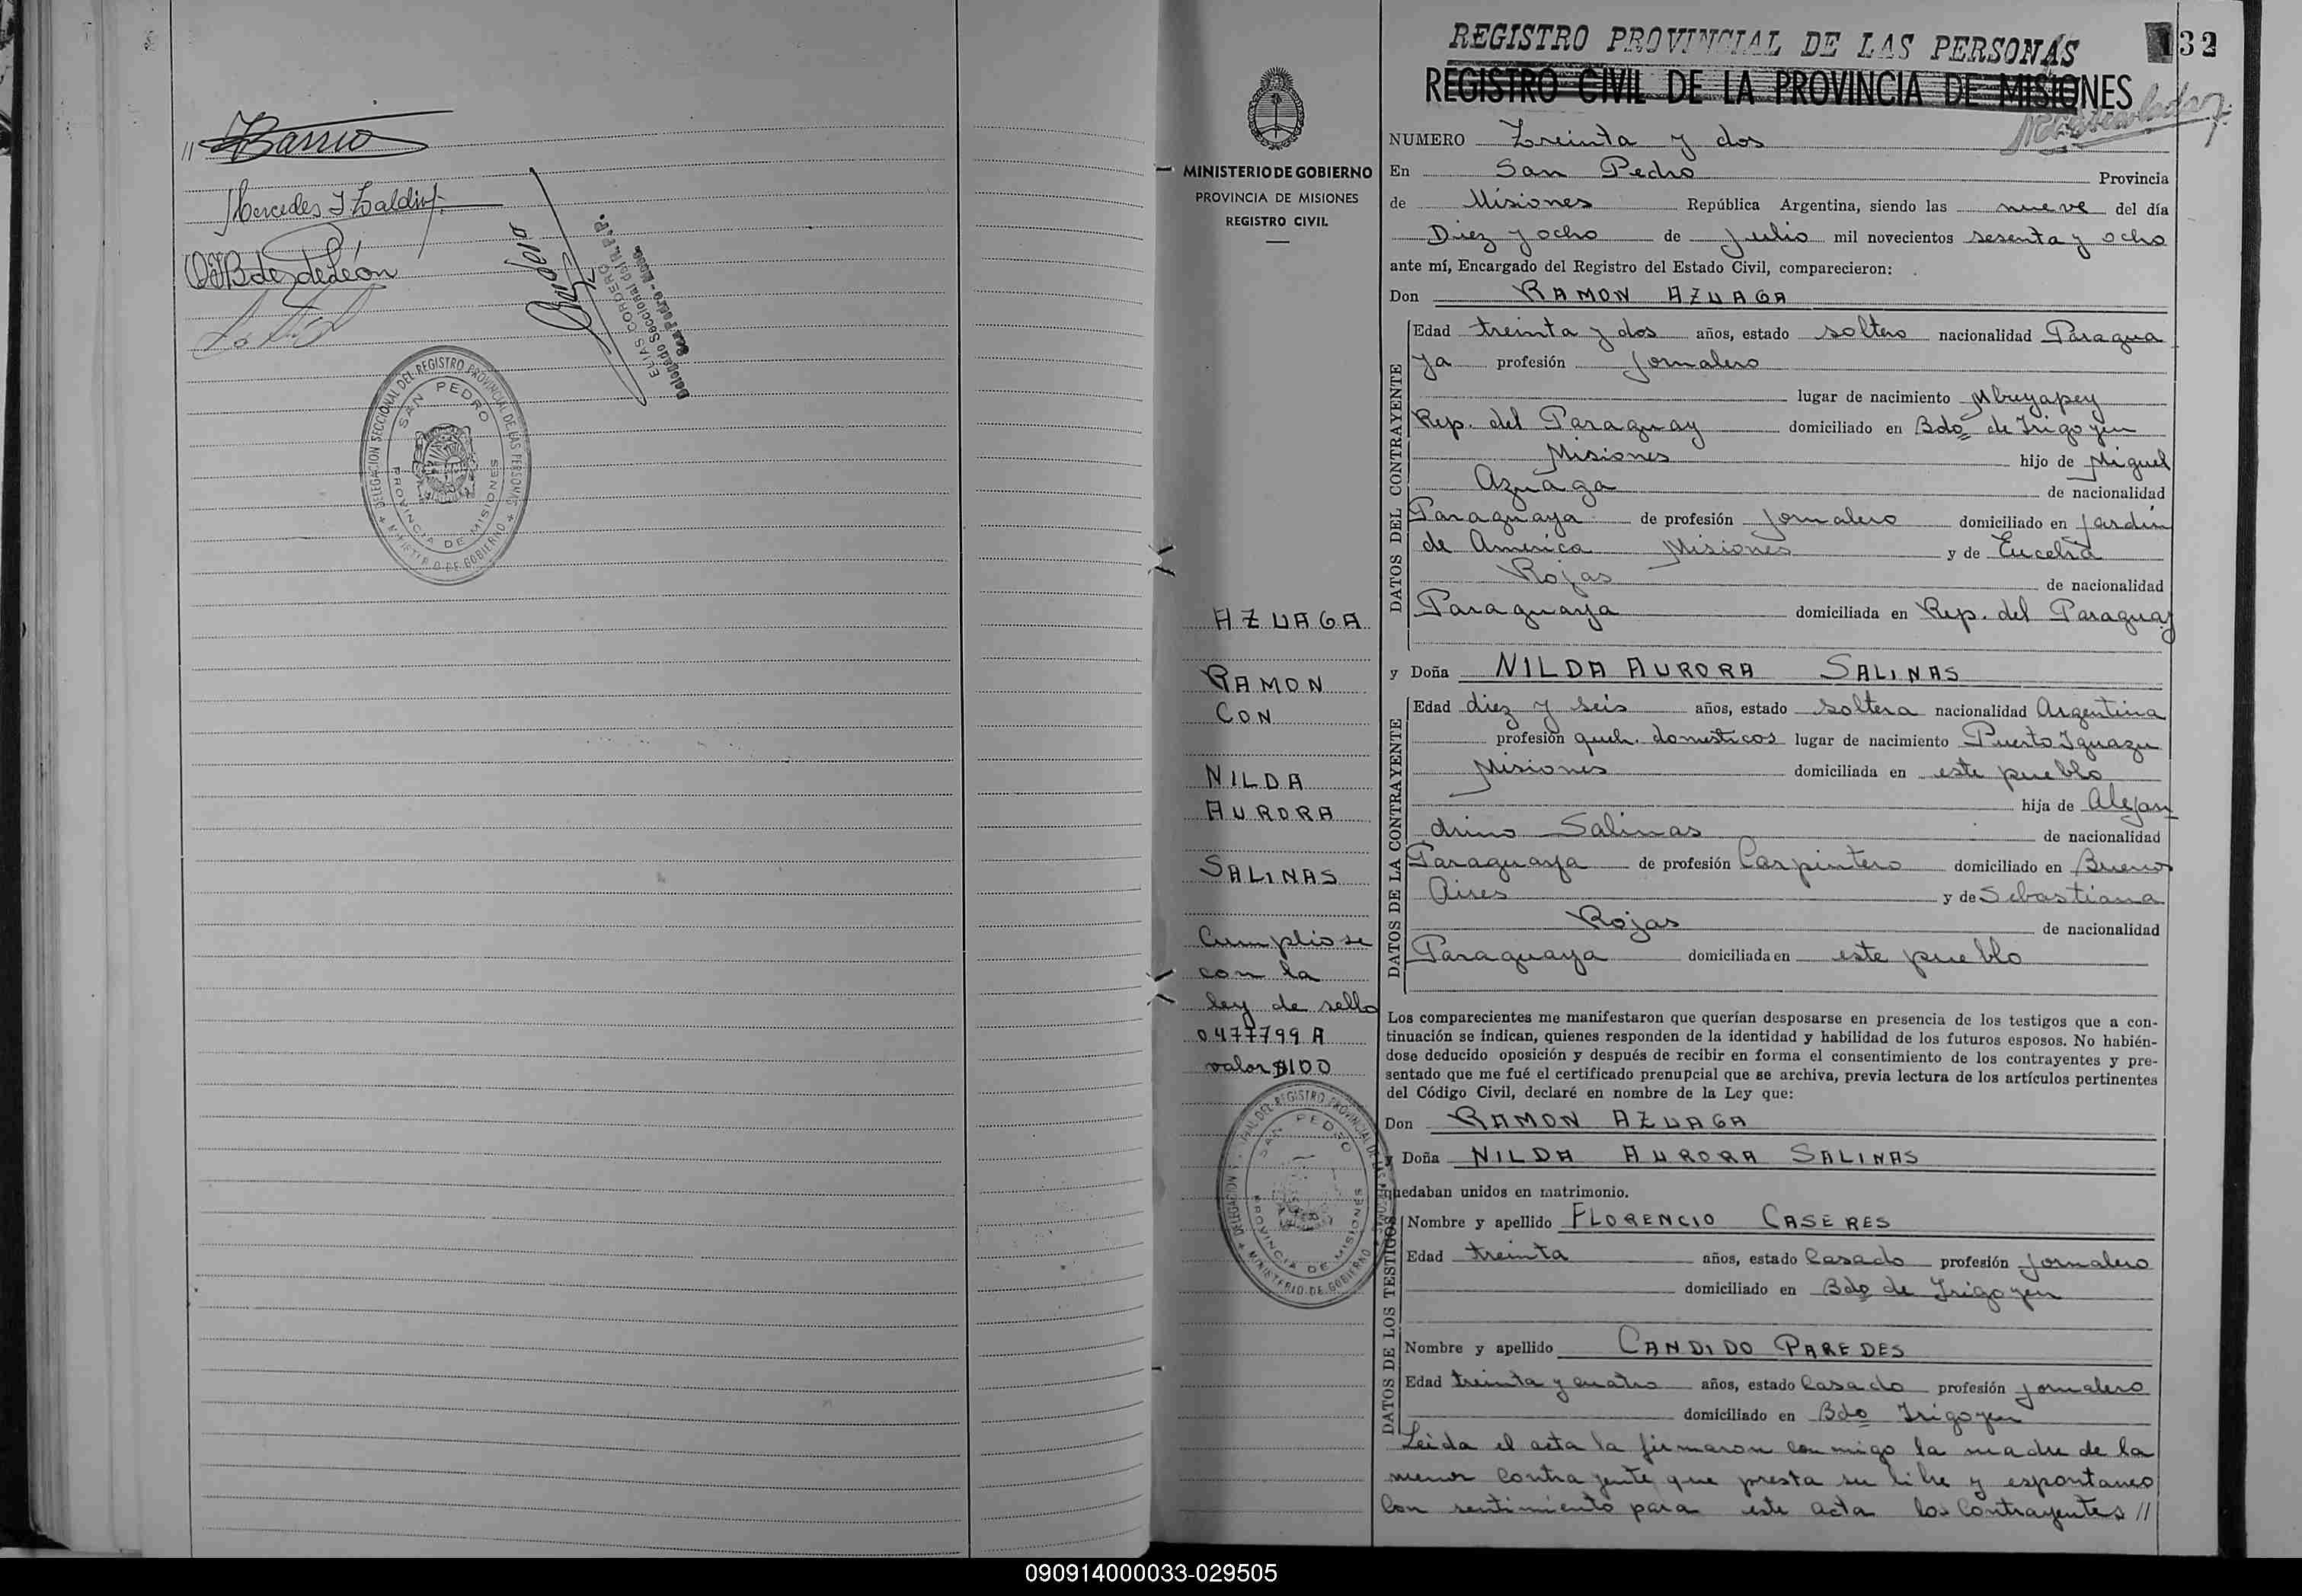 // Barrio
Mercedes I Zaldivar
de León
Cordero
ELIAS CORDERO
Delegado Seccional del R.P.P.
San Pedro - Mnes.
DELEGACION SECCIONAL DEL REGISTRO PROVINCIAL DE LAS PERSONAS
SAN PEDRO
PROVINCIA DE MISIONES
MINISTERIO DE GOBIERNO
MINISTERIO DE GOBIERNO
PROVINCIA DE MISIONES
REGISTRO CIVIL
AZUAGA
RAMON
CON
NILDA
AURORA
SALINAS
Cumpliose
con la
ley de sello
0477799 A
valor $100
DELEGACION SECCIONAL DEL REGISTRO PROVINCIAL DE LAS PERSONAS
SAN PEDRO
PROVINCIA DE MISIONES
MINISTERIO DE GOBIERNO
REGISTRO PROVINCIAL DE LAS PERSONAS
132
REGISTRO CIVIL DE LA PROVINCIA DE MISIONES
NUMERO Treinta y dos
En San Pedro Provincia
de Misiones República Argentina, siendo las nueve del día
Diez y ocho de Julio mil novecientos sesenta y ocho
ante mí, Encargado del Registro del Estado Civil, comparecieron:
Don RAMON AZUAGA
DATOS DEL CONTRAYENTE
Edad treinta y dos años, estado soltero nacionalidad Paragua
ya profesión Jornalero
lugar de nacimiento Mbuyapey
Rep. del Paraguay domiciliado en Bdo de Irigoyen
Misiones hijo de Miguel
Azuaga de nacionalidad
Paraguaya de profesión Jornalero domiciliado en Jardin
de America Misiones y de Eucelia
Rojas de nacionalidad
Paraguaya domiciliada en Rep. del Paraguay
y Doña NILDA AURORA SALINAS
DATOS DE LA CONTRAYENTE
Edad diez y seis años, estado soltera nacionalidad Argentina
profesión queh. domesticos lugar de nacimiento Puerto Iguazu
Misiones domiciliada en este pueblo
hija de Alejan
drino Salinas de nacionalidad
Paraguaya de profesión Carpintero domiciliado en Buenos
Aires y de Sebastiana
Rojas de nacionalidad
Paraguaya domiciliada en este pueblo
Los comparecientes me manifestaron que querían desposarse en presencia de los testigos que a con-
tinuación se indican, quienes responden de la identidad y habilidad de los futuros esposos. No habién-
dose deducido oposición y después de recibir en forma el consentimiento de los contrayentes y pre-
sentado que me fué el certificado prenupcial que se archiva, previa lectura de los artículos pertinentes
del Código Civil, declaré en nombre de la Ley que:
Don RAMON AZUAGA
y Doña NILDA AURORA SALINAS
quedaban unidos en matrimonio.
DATOS DE LOS TESTIGOS
Nombre y apellido FLORENCIO CASERES
Edad treinta años, estado Casado profesión Jornalero
domiciliado en Bdo de Irigoyen
Nombre y apellido CANDIDO PAREDES
Edad treinta y cuatro años, estado Casado profesión Jornalero
domiciliado en Bdo Irigoyen
Leida el acta la firmaron conmigo la madre de la
menor contrayente que presta su libre y espontaneo
Con sentimiento para este acta los Contrayentes //
090914000033-029505